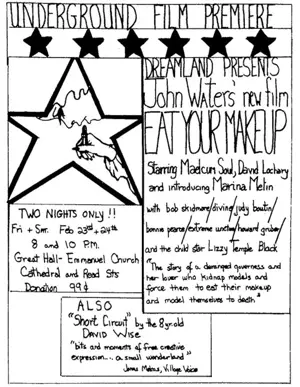 UNDERGROUND FILM PREMIERE
DREAMLAND PRESENTS
John Waters' new film
EAT YOUR MAKEUP
Starring Maelcum Soul, David Lochary
and introducing Marina Melin
with bob skidmore/divine/judy boutin/
bonnie pearce/extreme unction/howard gruber/
and the child star Lizzy Temple Black
"The story of a deranged governess and
her lover who kidnap models and
force them to eat their makeup
and model themselves to death."
TWO NIGHTS ONLY!!
Fri + Sat. Feb 23rd + 24th
8 and 10 P.M.
Great Hall - Emmanuel Church
Cathedral and Read Sts
Donation 99¢
ALSO
"Short Circuit" by the 8 yr. old
DAVID WISE
"bits and moments of free creative
expression... a small wonderland"
Village Voice